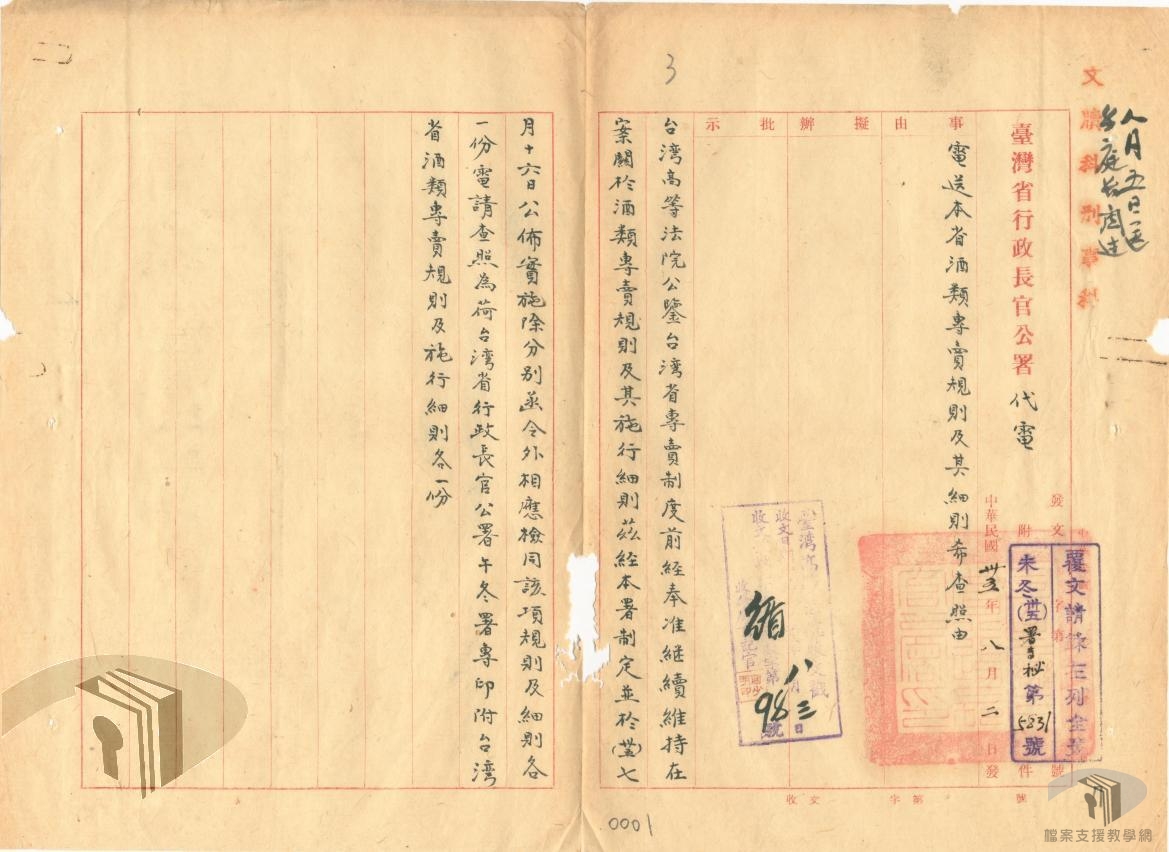 3
文牘科刑事
八月五日送
臺灣省行政長官公署代電
發文字第號
附件
中華民國卅五年八月二日發
覆文請錄左列全銜
未冬(卅五)署秘第5831號
事由
電送本省酒類專賣規則及其細則希查照由
擬辦
批示
收文字第號
八月三日
981號
台湾高等法院公鑒台湾省專賣制度前經奉准継續維持在
案關於酒類專賣規則及其施行細則茲経本署制定並於(卅五)七
月十六日公佈實施除分别函令外相應檢同該項規則及細則各
一份電請查照為荷台湾省行政長官公署午冬署專印附台湾
省酒類專賣規則及施行細則各一份
0001
檔案支援教學網